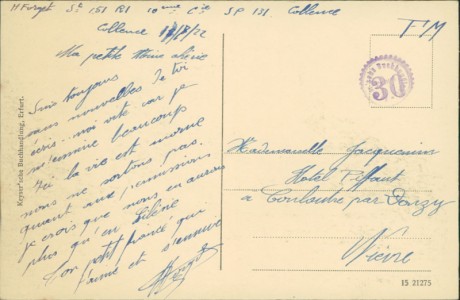 M Forget St 151 RI 10ème Cie SP 131. Coblence
F M
Coblence
Ma petite
Suis toujours
sans nouvelles de toi
écris-moi vite car je
m'ennuie beaucoup
Ici la vie est morne
nous ne sortons pas.
quant aux permissions
je crois que nous en aurons
plus qu'en
Ton petit fiancé qui
t'aime et s'ennuie
30
Mademoiselle Jacquemin
Hotel Piffaut
à par Donzy
Nièvre
Keyser'sche Buchhandlung, Erfurt.
15 21275